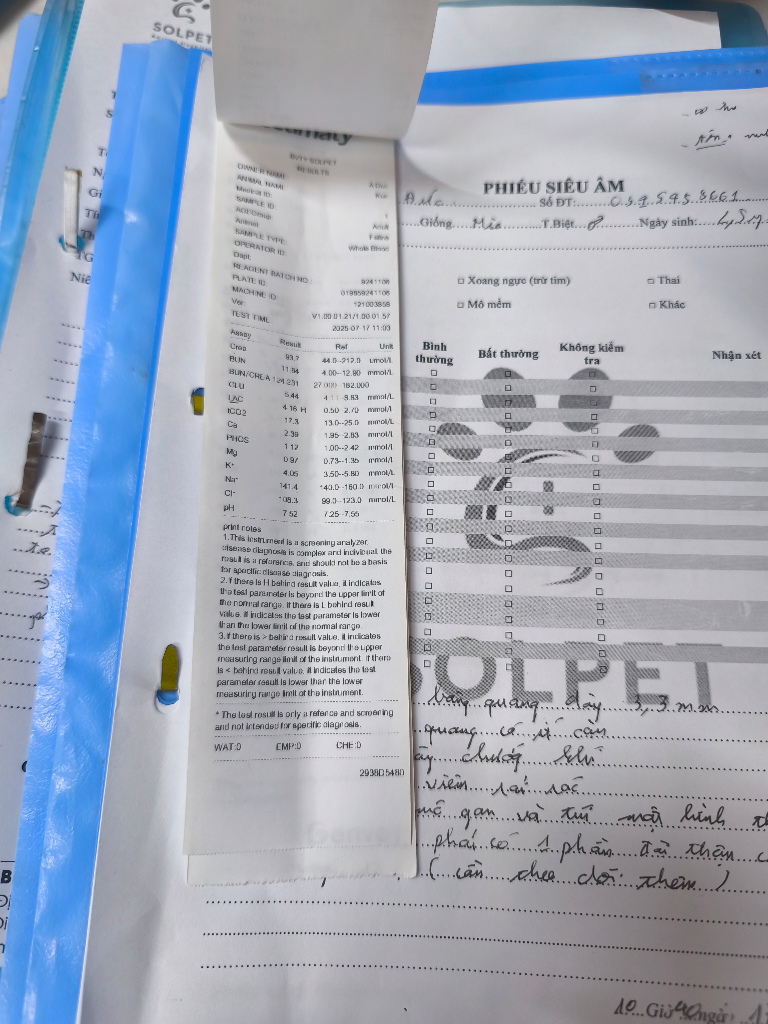 SOLPET
BUVY SOLPET
RESULTS
OWNER NAME
ANIMAL NAME
Medical ID
SAMPLE ID
AGE/Group Adult
Animal Feline
SAMPLE TYPE: Whole Blood
OPERATOR ID:
Dept.
REAGENT BATCH NO.: 9241106
PLATE ID
MACHINE ID
Ver V1.00.01.21/1.00.01.57
TEST TIME 2025-07-17 11:03
Assay Result Ref Unit
Crea 93.7 44.0-212.0 umol/L
BUN 11.64 4.00-12.90 mmol/L
BUN/CREA 124.231 27.000-182.000
GLU 5.44 mmol/L
LAC 4.16 H 0.50-2.70 mmol/L
tCO2 17.3 13.0-25.0 mmol/L
Ca 2.39 1.95-2.83 mmol/L
PHOS 1.12 1.00-2.42 mmol/L
Mg 0.97 0.73-1.35 mmol/L
K⁺ 4.05 3.50-5.80 mmol/L
Na⁺ 141.4 140.0-160.0 mmol/L
Cl⁻ 108.3 99.0-123.0 mmol/L
pH 7.52 7.25-7.55
print notes
1.This instrument is a screening analyzer,
disease diagnosis is complex and individual, the
result is a reference, and should not be a basis
for specific disease diagnosis.
2.If there is H behind result value, it indicates
the test parameter is beyond the upper limit of
the normal range. If there is L behind result
value, it indicates the test parameter is lower
than the lower limit of the normal range.
3.If there is > behind result value, it indicates
the test parameter result is beyond the upper
measuring range limit of the instrument. If there
is < behind result value, it indicates the test
parameter result is lower than the lower
measuring range limit of the instrument.
* The test result is only a refence and screening
and not intended for specific diagnosis.
WAT:0 EMP:0 CHE:0
2938D5480
PHIẾU SIÊU ÂM
Số ĐT: 039.595.8661
Giống Mèo T.Biệt Ngày sinh:
Xoang ngực (trừ tim) Thai
Mô mềm Khác
Bình thường Bất thường Không kiểm tra Nhận xét
SOLPET
bàng quang dày 3,3 mm
quang có ít cặn
chướng khí
viêm rải rác
gan và túi mật hình
phải có 1 phần đài thận
(cần theo dõi thêm)
10 Giờ 40 ngày